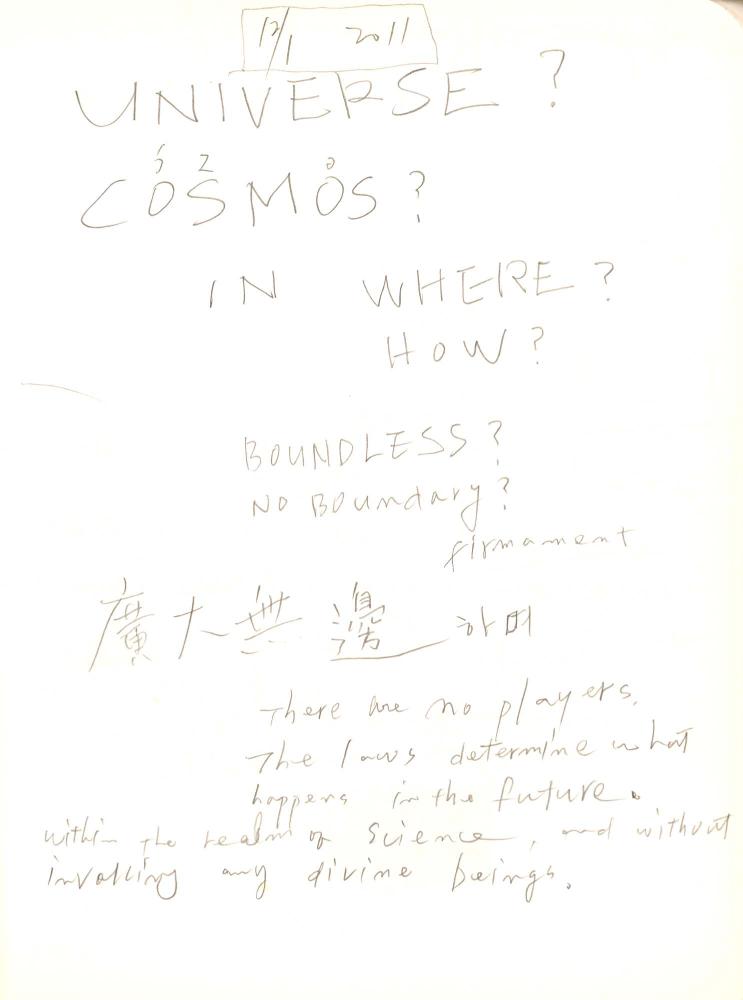 12/1 2011
UNIVERSE ?
COSMOS ?
IN WHERE ?
HOW ?
BOUNDLESS ?
NO BOUNdary ?
firmament
廣大無邊 하며
There are no players.
The laws determine what
happens in the future.
within the realm of science, and without
invoking any divine beings.